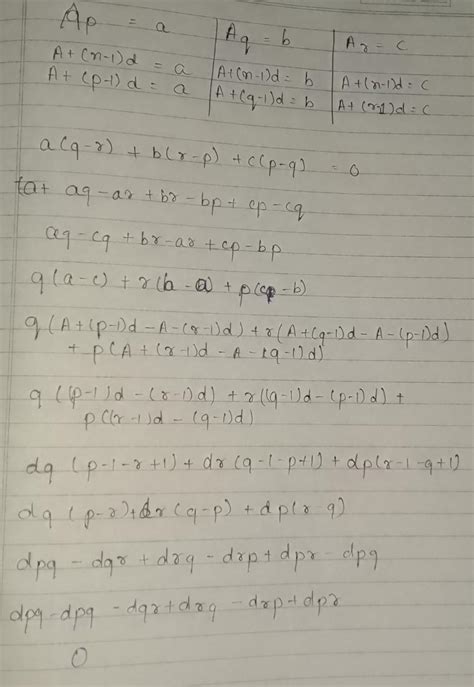 Ap = a | Aq = b | Ar = c
A+(n-1)d = a | A+(n-1)d = b | A+(n-1)d = c
A+(p-1)d = a | A+(q-1)d = b | A+(r-1)d = c
a(q-r) + b(r-p) + c(p-q) = 0
aq-ar+br-bp+cp-cq
aq-cq+br-ar+cp-bp
q(a-c) + r(b-a) + p(c-b)
q(A+(p-1)d-A-(r-1)d)+r(A+(q-1)d-A-(p-1)d)
+ p(A+(r-1)d-A-(q-1)d)
q((p-1)d-(r-1)d)+r((q-1)d-(p-1)d)+
p((r-1)d-(q-1)d)
dq(p-1-r+1)+dr(q-1-p+1)+dp(r-1-q+1)
dq(p-r)+dr(q-p)+dp(r-q)
dpq-dqr+drq-drp+dpr-dpq
dpq-dpq-dqr+drq-drp+dpr
0